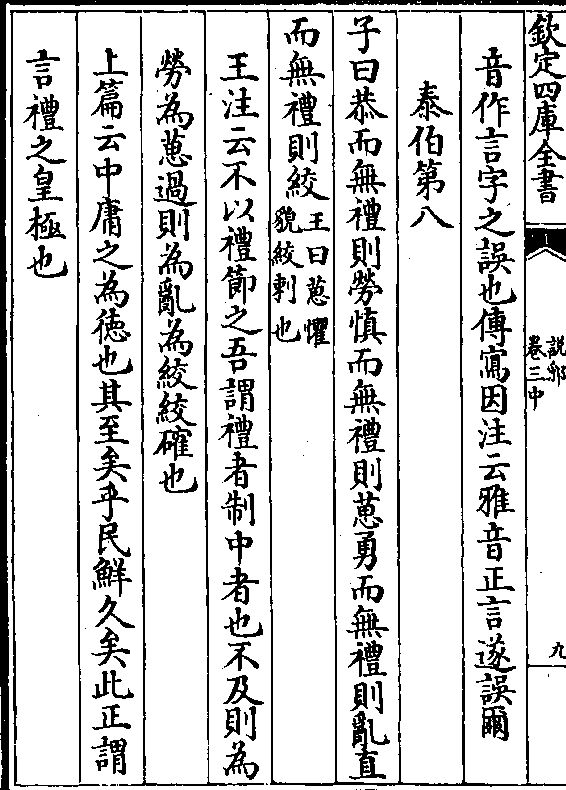 欽定四庫全書
說郛
卷三中
九
音作言字之誤也傳寫因注云雅音正言遂誤爾
泰伯第八
子曰恭而無禮則勞慎而無禮則葸勇而無禮則亂直
而無禮則絞王曰葸懼
貌絞刺也
王注云不以禮節之吾謂禮者制中者也不及則為
勞為葸過則為亂為絞絞確也
上篇云中庸之為徳也其至矣乎民鮮久矣此正謂
言禮之皇極也